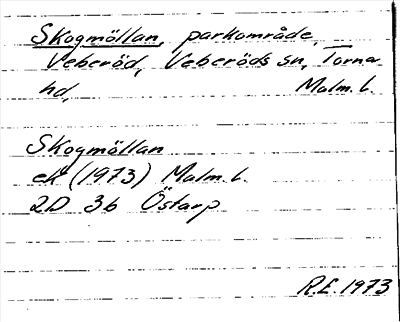 Skogmöllan, parkområde,
Veberöd, Veberöds sn, Torna
hd, Malm. l.
Skogmöllan
ek (1973) Malm. l.
2D 3b Östarp
R.E. 1973